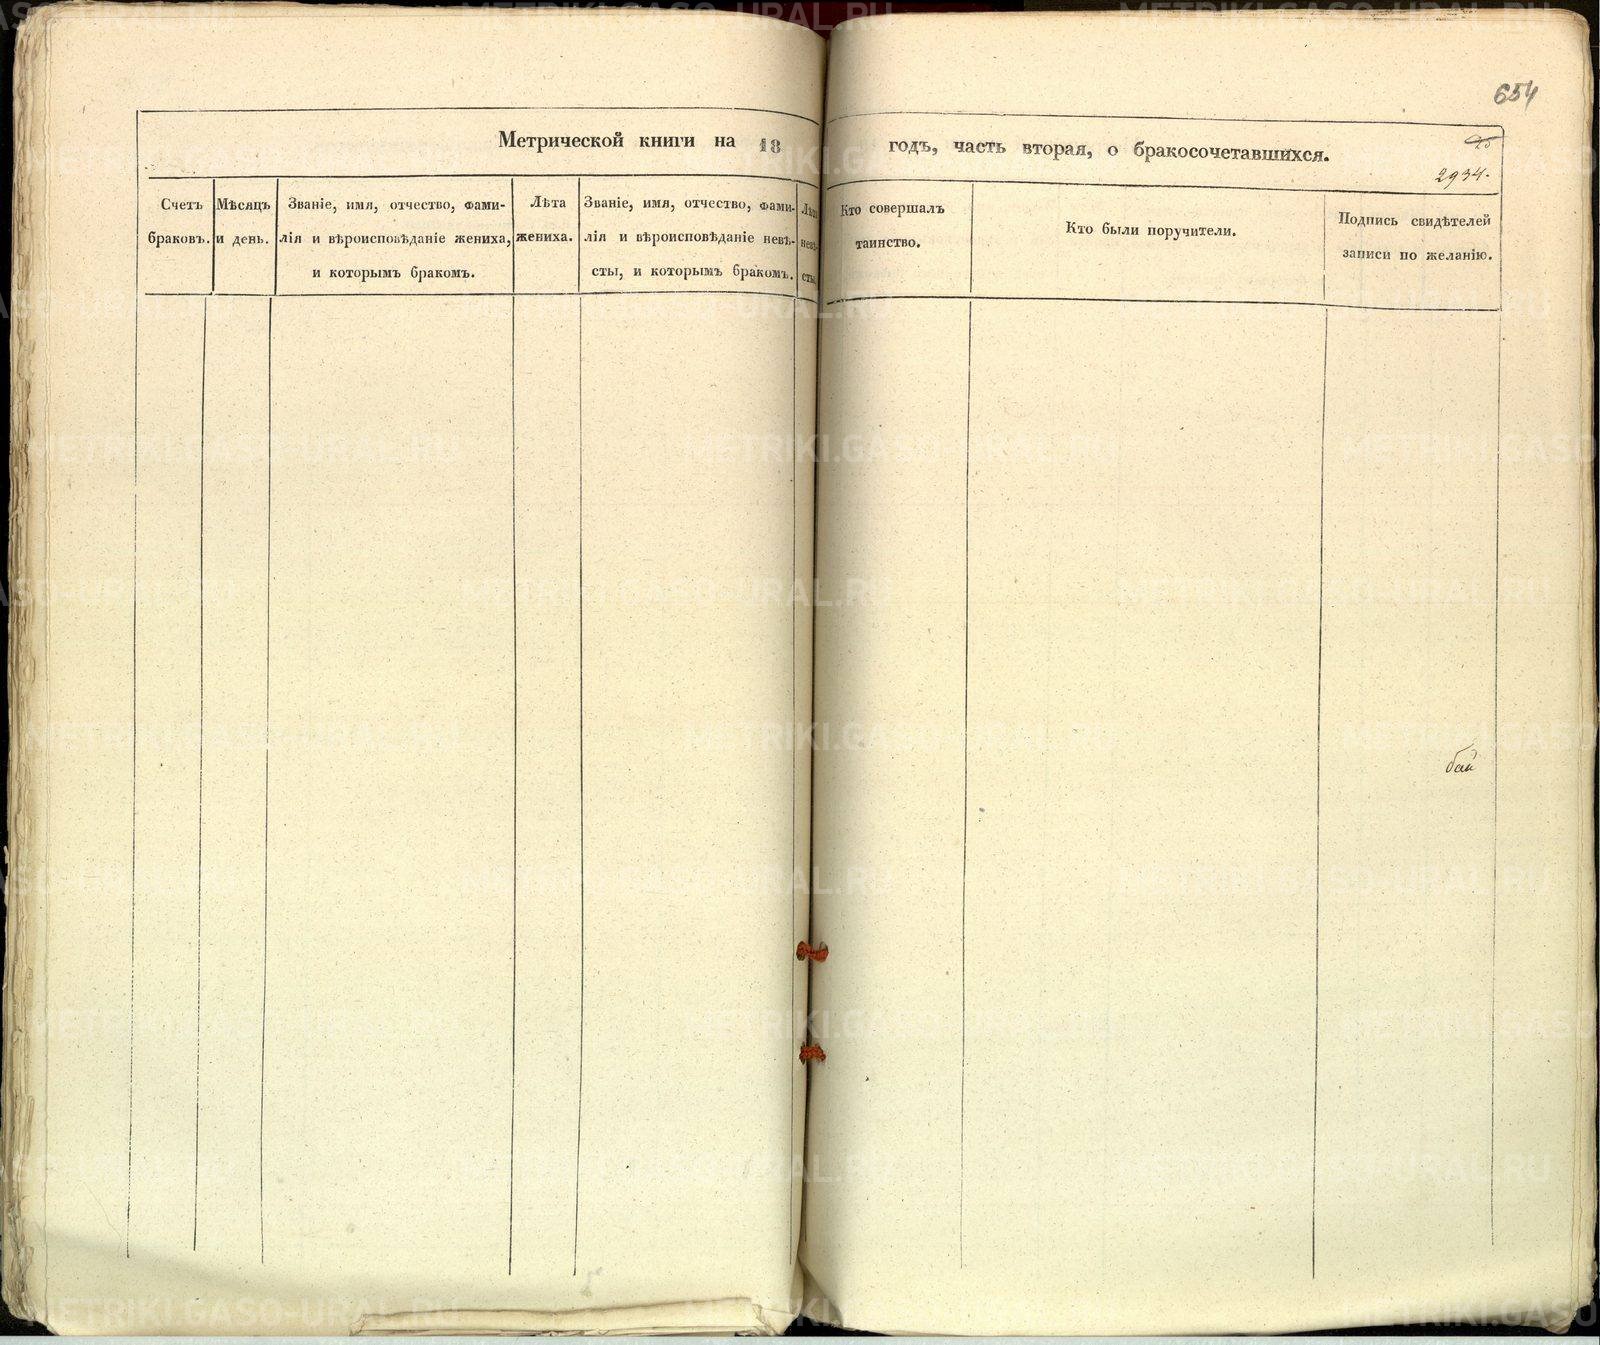 654
Метрической книги на 18 годъ, часть вторая, о бракосочетавшихся.
2934.
Счетъ браковъ.
Мѣсяцъ и день.
Званіе, имя, отчество, фами-
лія и вѣроисповѣданіе жениха,
и которымъ бракомъ.
Лѣта
жениха.
Званіе, имя, отчество, фами-
лія и вѣроисповѣданіе невѣ-
сты, и которымъ бракомъ.
Лѣта
невѣ-
сты.
Кто совершалъ
таинство.
Кто были поручители.
Подпись свидѣтелей
записи по желанію.
METRIKI.GASO-URAL.RU